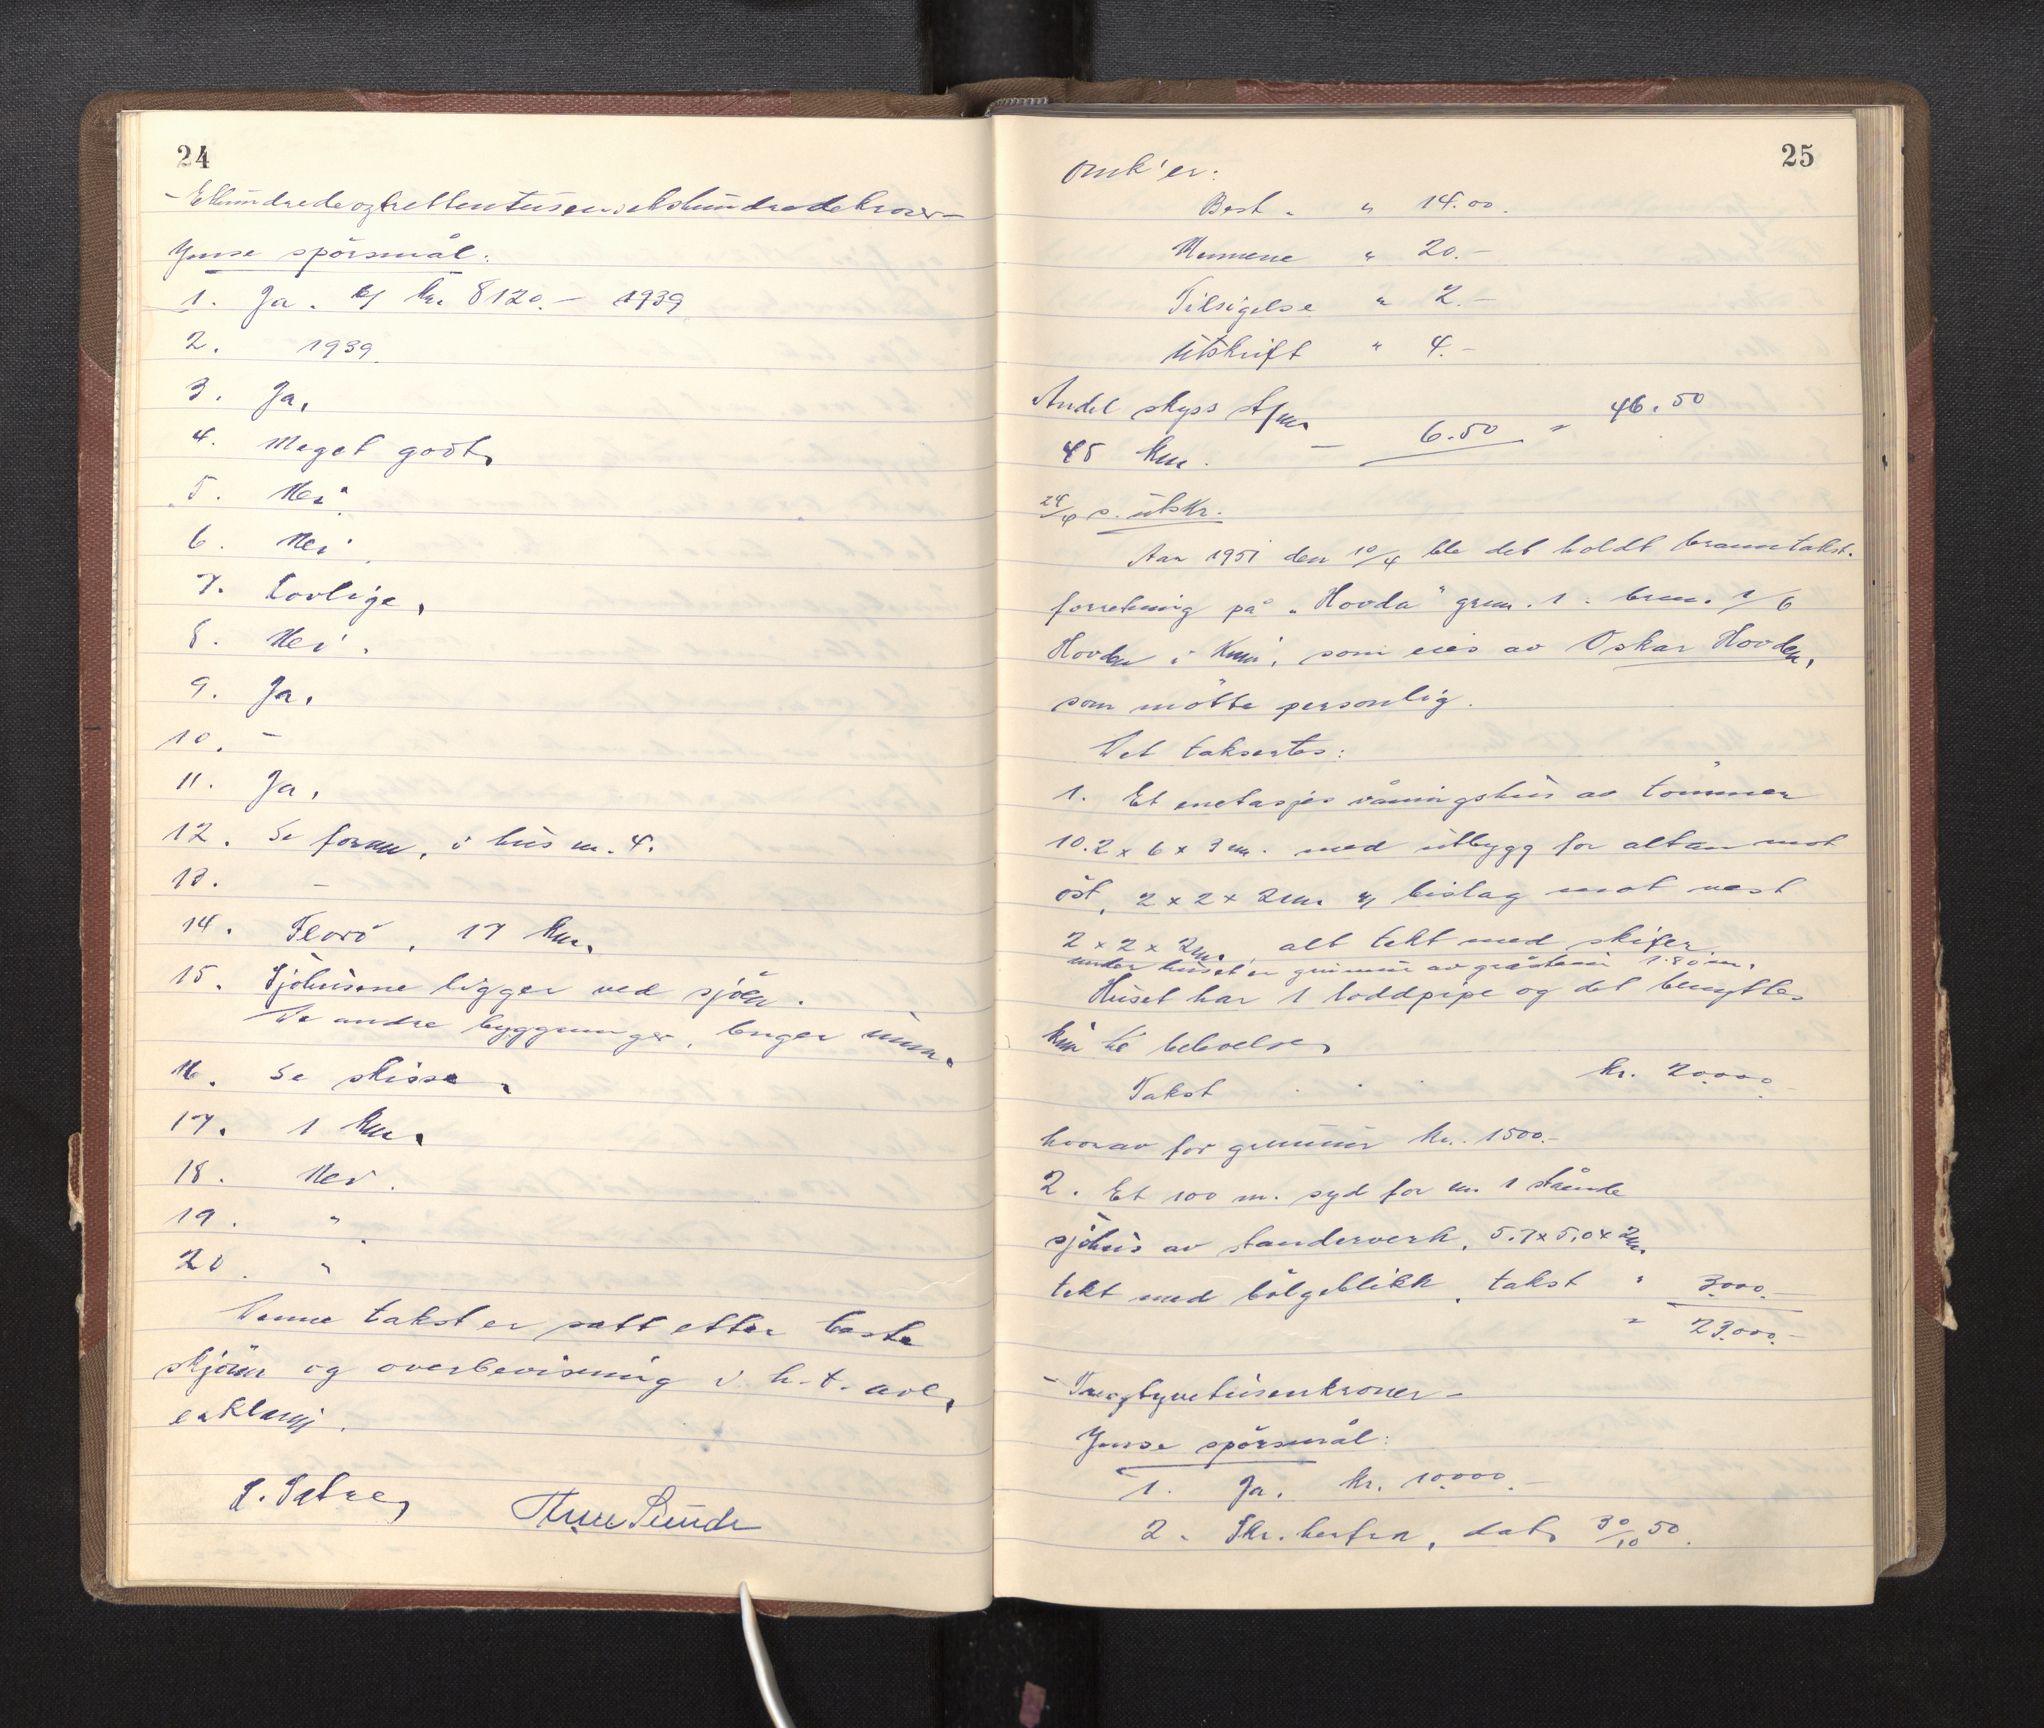 24
- Etthundredeogtrettentusenietthundredekroner -
Ymse spörsmål:
1. Ja. kr. 8120.- 1939
2. 1939.
3. Ja.
4. Meget godt.
5. Nei.
6. Nei.
7. Lovlige.
8. Nei.
9. Ja.
10. -
11. Ja.
12. Se foran, i hus nr. 4.
13. -
14. Florö, 17 km.
15. Sjöhusene ligger ved sjöen.
De andre bygninger, lenger unna.
16. Se skisse.
17. 1 km.
18. Nei.
19. "
20. "
Denne takst er satt etter beste
skjönn og overbevisning i h.t. avl.
erklæring.
Sunde
25
Omk'er:
Best. " 14.00.
Mennene " 20.-
Tilsigelse " 2.-
Utskrift " 4.-
Andel skyss
45 km. - 6.50 " 46.50
24/4 s. utskr.
Aar 1951 den 10/4 ble det holdt branntakst-
forretning på "Hovda" grnr. 1. brnr. 1/6
Hovden i Kinn, som eies av Oskar Hovden,
som mötte personlig.
Det taksertes:
1. Et enetasjes våningshus av tömmer
10.2 x 6 x 3 m. med utbygg for altan mot
öst, 2 x 2 x 2 m. og bislag mot vest
2 x 2 x 2 m., alt tekt med skifer.
under huset er grunnmur av gråstein 1.80 m.
Huset har 1 loddpipe og det benyttes
kun til beboelse.
Takst . . . kr. 20.000.-
hvorav for grunnmur kr. 1500.-
2. Et 100 m. syd for nr. 1 stående
sjöhus av standerverk, 5.7 x 5.0 x 2 m.
tekt med bölgeblikk, takst " 3.000.-
" 23.000.-
- Treogtyvetusenkroner -
Ymse spörsmål:
1. Ja. kr. 10.000.-
2. Skr. herfra, dat. 30/10 50.